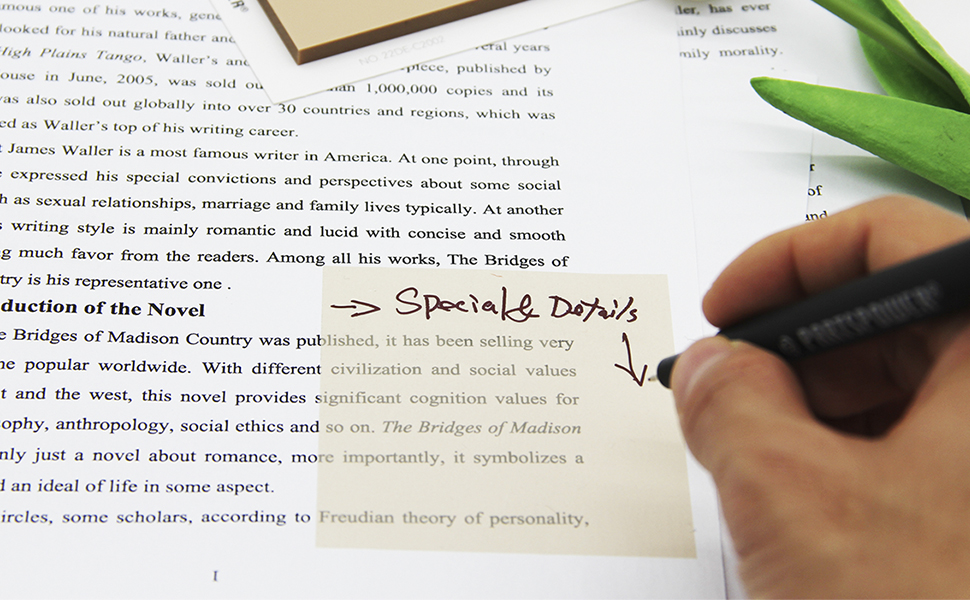 mous one of his works, gene
looked for his natural father and
High Plains Tango, Waller's and
ouse in June, 2005, was sold ou
was also sold out globally into over 30 countries and regions, which was
ed as Waller's top of his writing career.
eral years
piece, published by
han 1,000,000 copies and its
NO. 22DE-C2002
ller, has ever
inly discusses
mily morality.
James Waller is a most famous writer in America. At one point, through
expressed his special convictions and perspectives about some social
h as sexual relationships, marriage and family lives typically. At another
s writing style is mainly romantic and lucid with concise and smooth
ng much favor from the readers. Among all his works, The Bridges of
try is his representative one .
of
and
duction of the Novel
→ Special & Details
↓
e Bridges of Madison Country was published, it has been selling very
me popular worldwide. With different civilization and social values
t and the west, this novel provides significant cognition values for
ophy, anthropology, social ethics and so on. The Bridges of Madison
nly just a novel about romance, more importantly, it symbolizes a
d an ideal of life in some aspect.
ircles, some scholars, according to Freudian theory of personality,
I